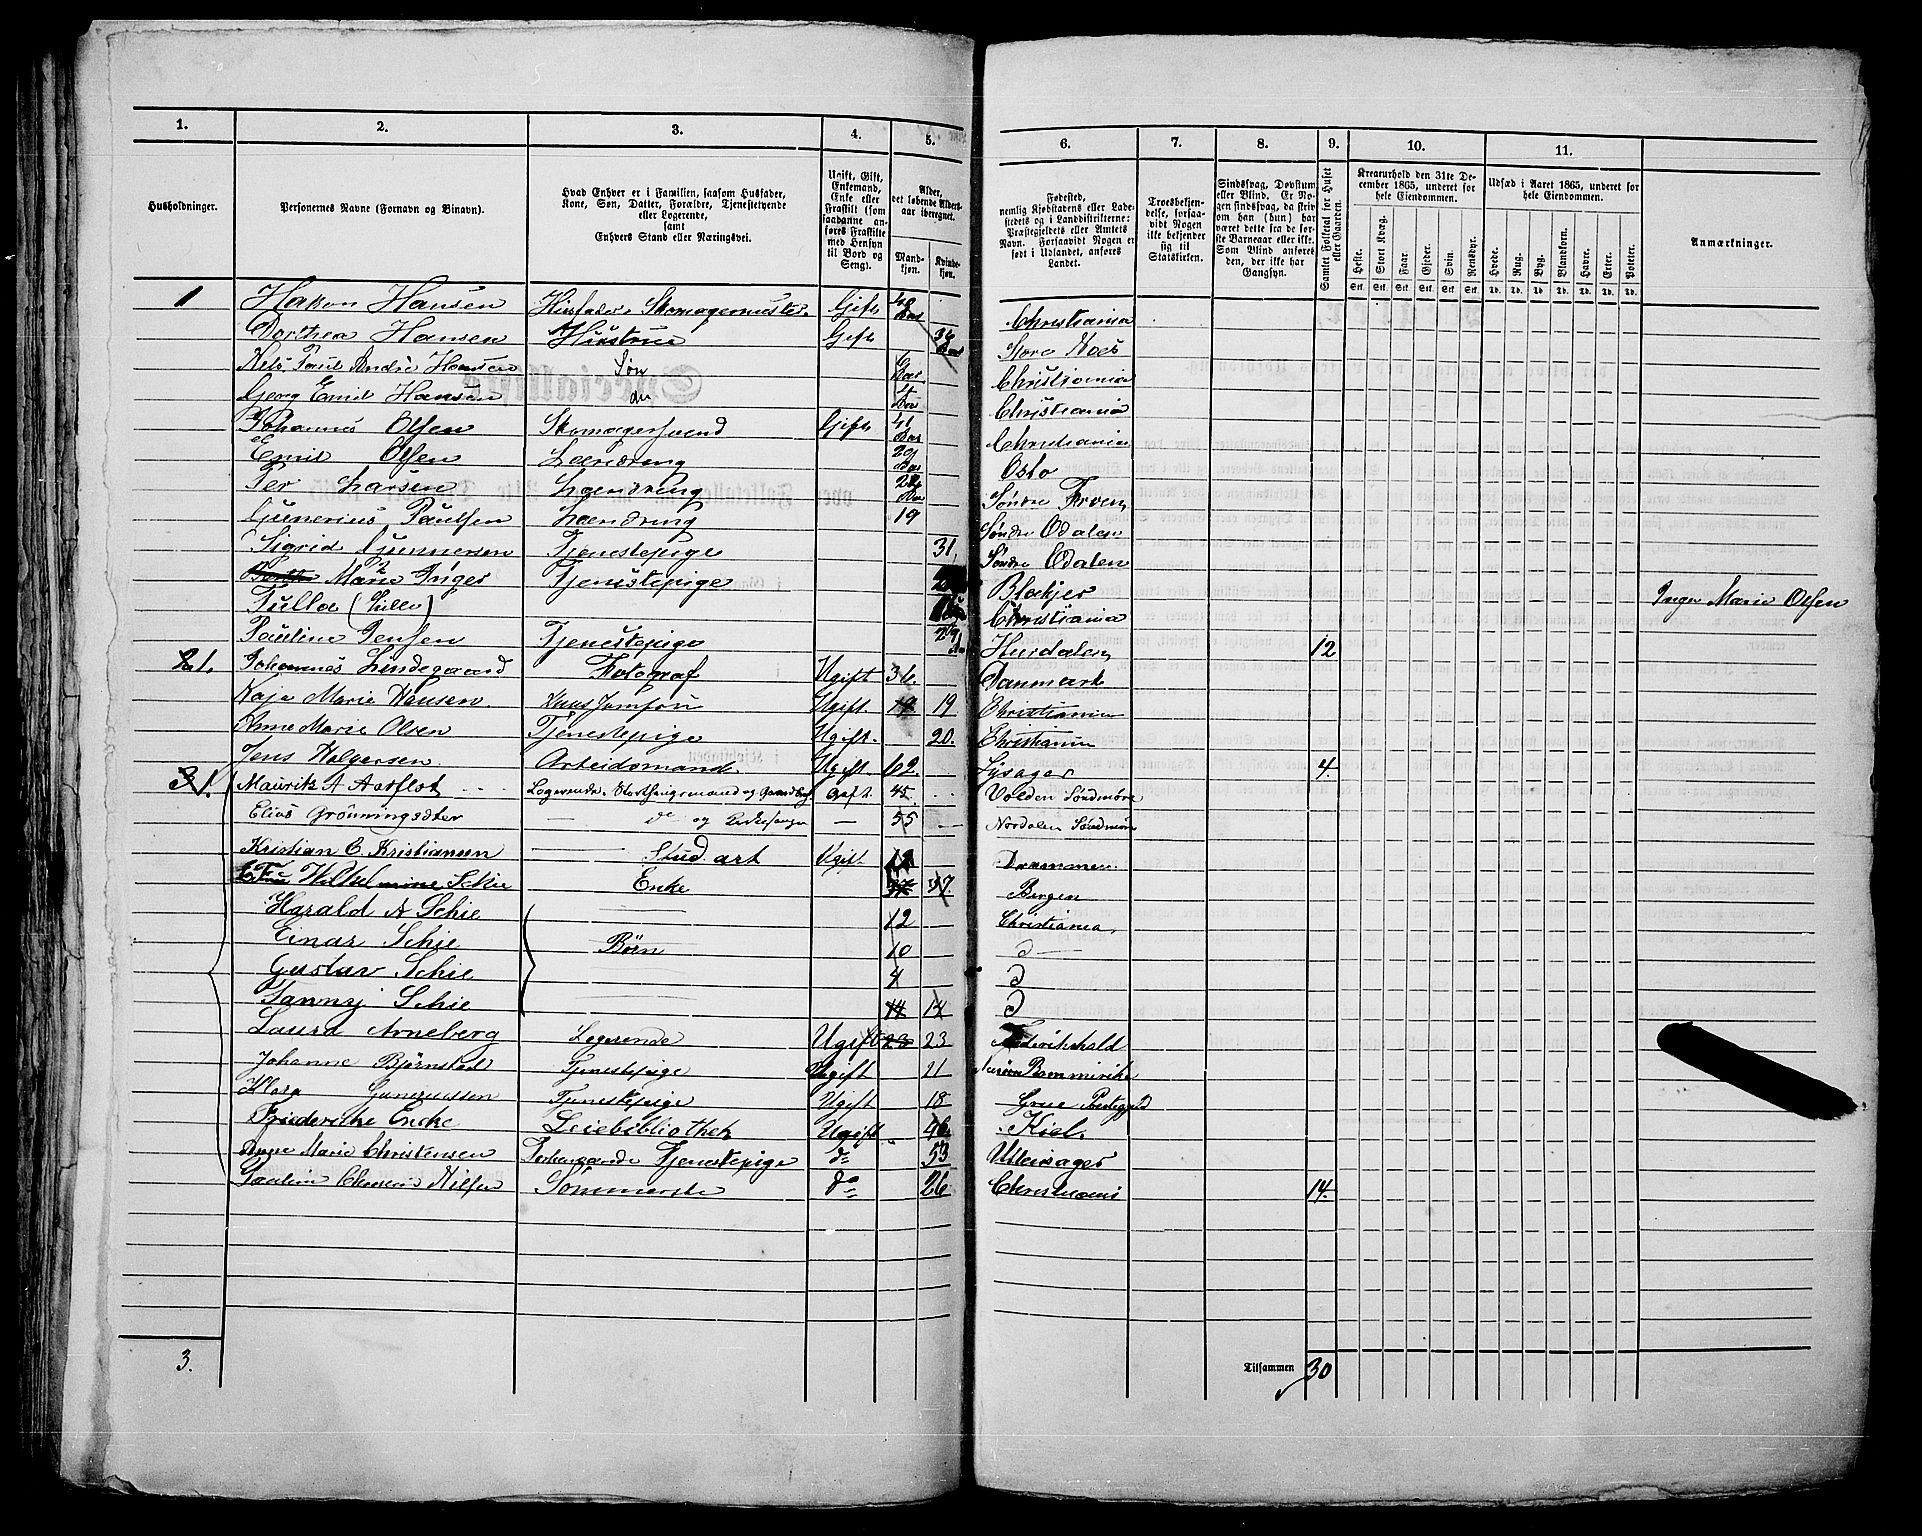 1. 2. 3. 4. 5. 6. 7. 8. 9. 10. 11.
Husholdninger.
Personernes Navne (Fornavn og Binavn).
Hvad Enhver er i Familien, saasom Husfader,
Kone, Søn, Datter, Forældre, Tjenestetyende
eller Logerende,
samt
Enhvers Stand eller Næringsvei.
Ugift, Gift,
Enkemand,
Enke eller
Fraskilt (som
saadanne an-
føres Fraskilte
med Hensyn
til Bord og
Seng).
Alder,
det løbende Alders-
aar iberegnet.
Mand-
kjøn.
Kvinde-
kjøn.
Fødested,
nemlig Kjøbstadens eller Lade-
stedets og i Landdistrikterne:
Præstegjeldets eller Amtets
Navn. Forsaavidt Nogen er
født i Udlandet, anføres
Landet.
Troesbekjen-
delse, forsaa-
vidt Nogen
ikke bekjender
sig til
Statskirken.
Sindssvag, Døvstum
eller Blind. Er No-
gen sindssvag, da skriv
om han (hun) har
været dette fra de før-
ste Barneaar eller ikke.
Som Blind anføres
den, der ikke har
Gangsyn.
Samlet Folketal for Huset
eller Gaarden.
Kreaturhold den 31te De-
cember 1865, underet for
hele Eiendommen.
Heste. Stort Kvæg. Faar. Gjeder. Svin. Rensdyr.
Stk. Stk. Stk. Stk. Stk. Stk.
Udsæd i Aaret 1865, underet for
hele Eiendommen.
Hvede. Rug. Byg. Blandkorn. Havre. Erter. Poteter.
Td. Td. Td. Td. Td. Td. Td.
Anmærkninger.
1 Hakon Hansen Husfader Skomagermester. Gift Christiania
Dorthea Hansen Hustrue Gift Store Næs
Nils Paul Andre Hansen Søn 6 Aar Christiania
Georg Emil Hansen do Christiania
Johannes Olsen Skomagersvend Gift 41 Aar Christiania
Emil Olsen Læredreng 20 Oslo
Per Larsen Læredreng Søndre
Gunerius Paulsen Læredreng 19 Søndre Odalen
Sigrid Gunnersen Tjenestepige 31 Søndre Odalen
Marie Inger Tjenestepige Blakjer Inger Marie Olsen
Julla Christiania
Pauline Jensen Tjenestepige Hurdalen 12
2 1. Johannes Lindegaard Fotograf Ugift 36. Danmark
Kaja Marie Hansen Huus Jomfru Ugift. 19 Christiania
Anne Marie Olsen Tjenestepige Ugift. 20. Christiania
Jens Holgersen. Arbeidsmand Ugift. 4.
3 1. Maurik A Aarflot Logerende. Storthingsmand og Gaardbr Gift. 45. Volden Søndmøre
Elias Grønningsæter do og 55 Nordalen Søndmøre
Kristian C. Kristiansen Stud art Ugift Drammen.
Fru Wilhelmine Schie Enke 37 Bergen
Harald A Schie 12 Christiania.
Einar Schie Børn 10 d
Gustav Schie 4 d
Fanny Schie 14 d
Laura Arneberg Logerende Ugift 23 Frederikshald
Johanne Bjørnstad Tjenestepige Ugift 21
Gunerusen Tjenestepige Ugift 18 Grue
Friederike Encke Leiebibliothek Ugift 46. Kiel.
Anne Marie Christensen Tjenestepige do 53 Ullensager
do 26 Christiania 14.
3. Tilsammen 30